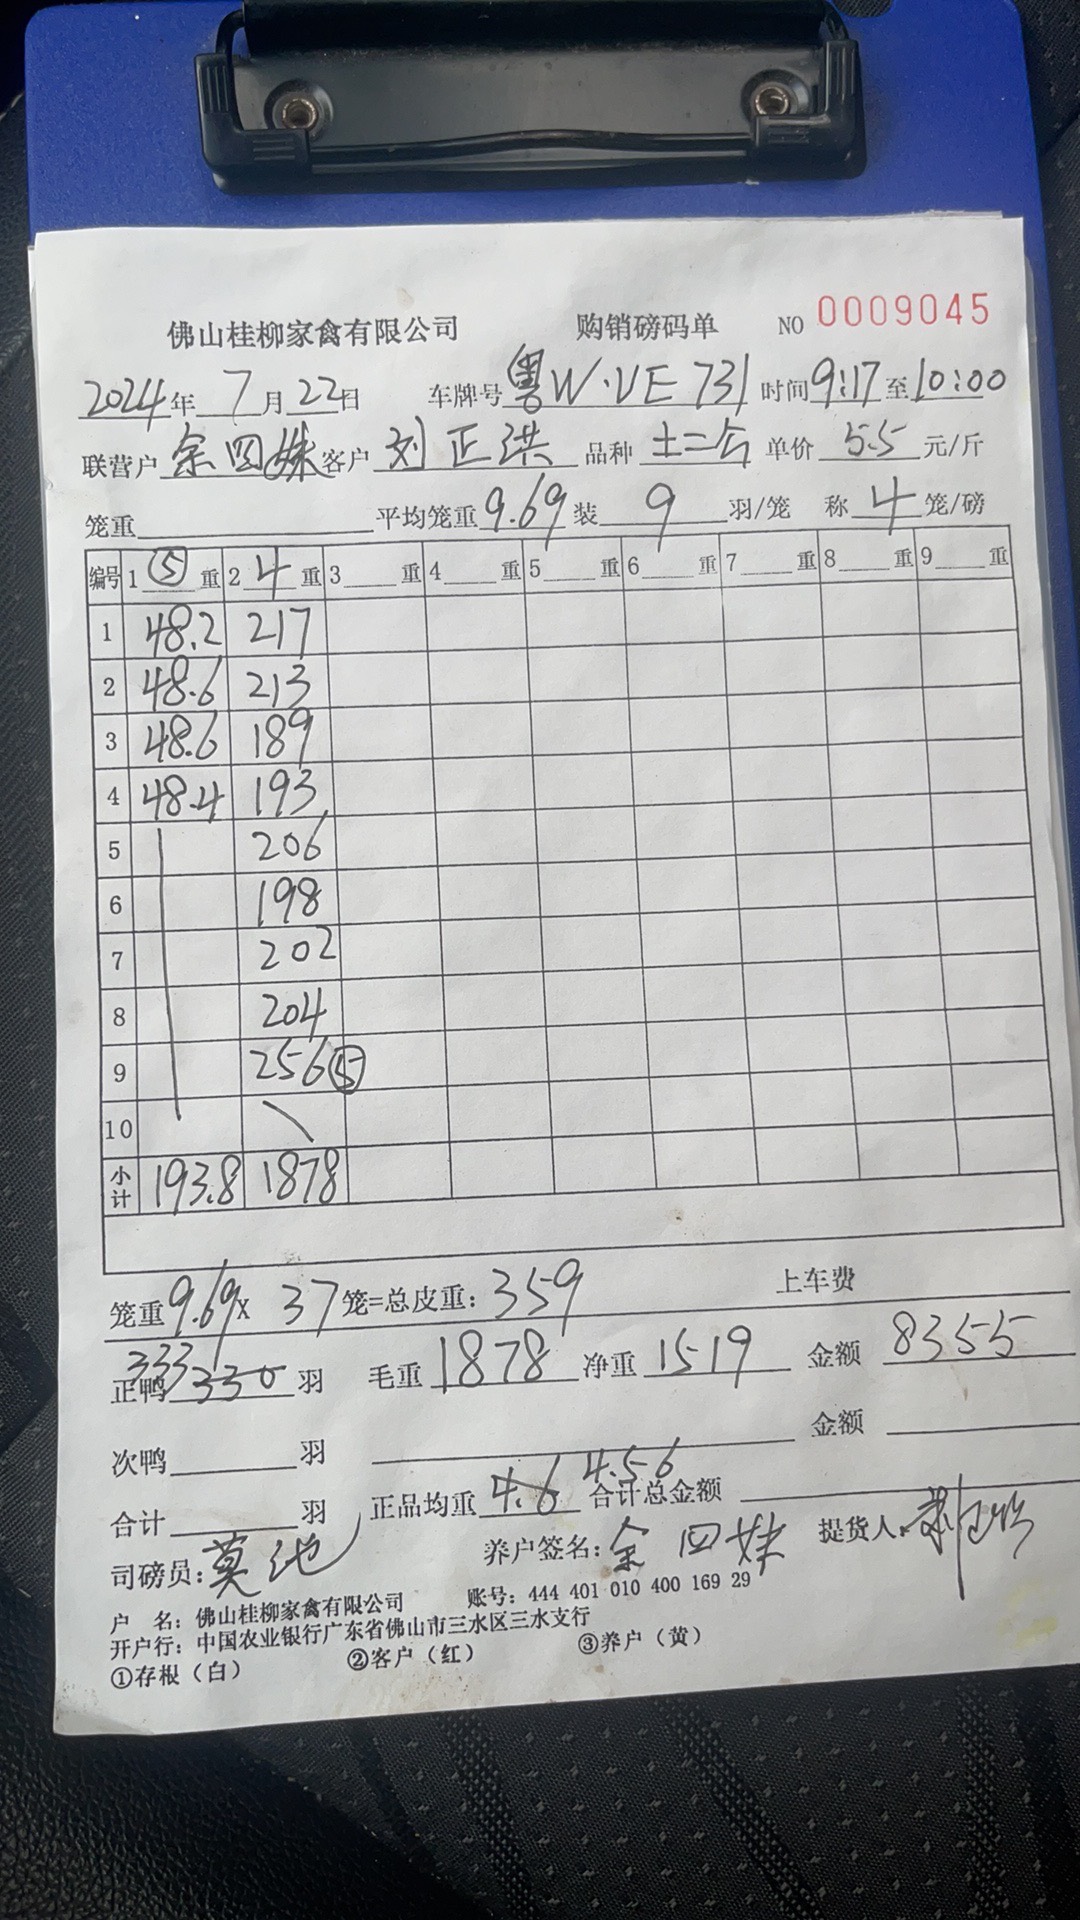 佛山桂柳家禽有限公司 购销磅码单 NO 0009045
2024年 7月22日 车牌号 粤W·VE731 时间9:17至10:00
联营户 余四妹 客户 刘正洪 品种 土二公 单价 5.5 元/斤
笼重 平均笼重 9.69 装 9 羽/笼 称 4 笼/磅
编号 1 ⑤ 重 2 4 重 3 重 4 重 5 重 6 重 7 重 8 重 9 重
1 48.2 217
2 48.6 213
3 48.6 189
4 48.4 193
5 206
6 198
7 202
8 204
9 256⑤
10
小计 193.8 1878
笼重9.69× 37笼=总皮重: 359 上车费
正鸭 333 330 羽 毛重 1878 净重 1519 金额 8355
次鸭 羽 金额
合计 羽 正品均重 4.6 4.56 合计总金额
司磅员: 莫池 养户签名: 余四妹 提货人:
户 名: 佛山桂柳家禽有限公司 账号: 444 401 010 400 169 29
开户行: 中国农业银行广东省佛山市三水区三水支行
①存根（白） ②客户（红） ③养户（黄）